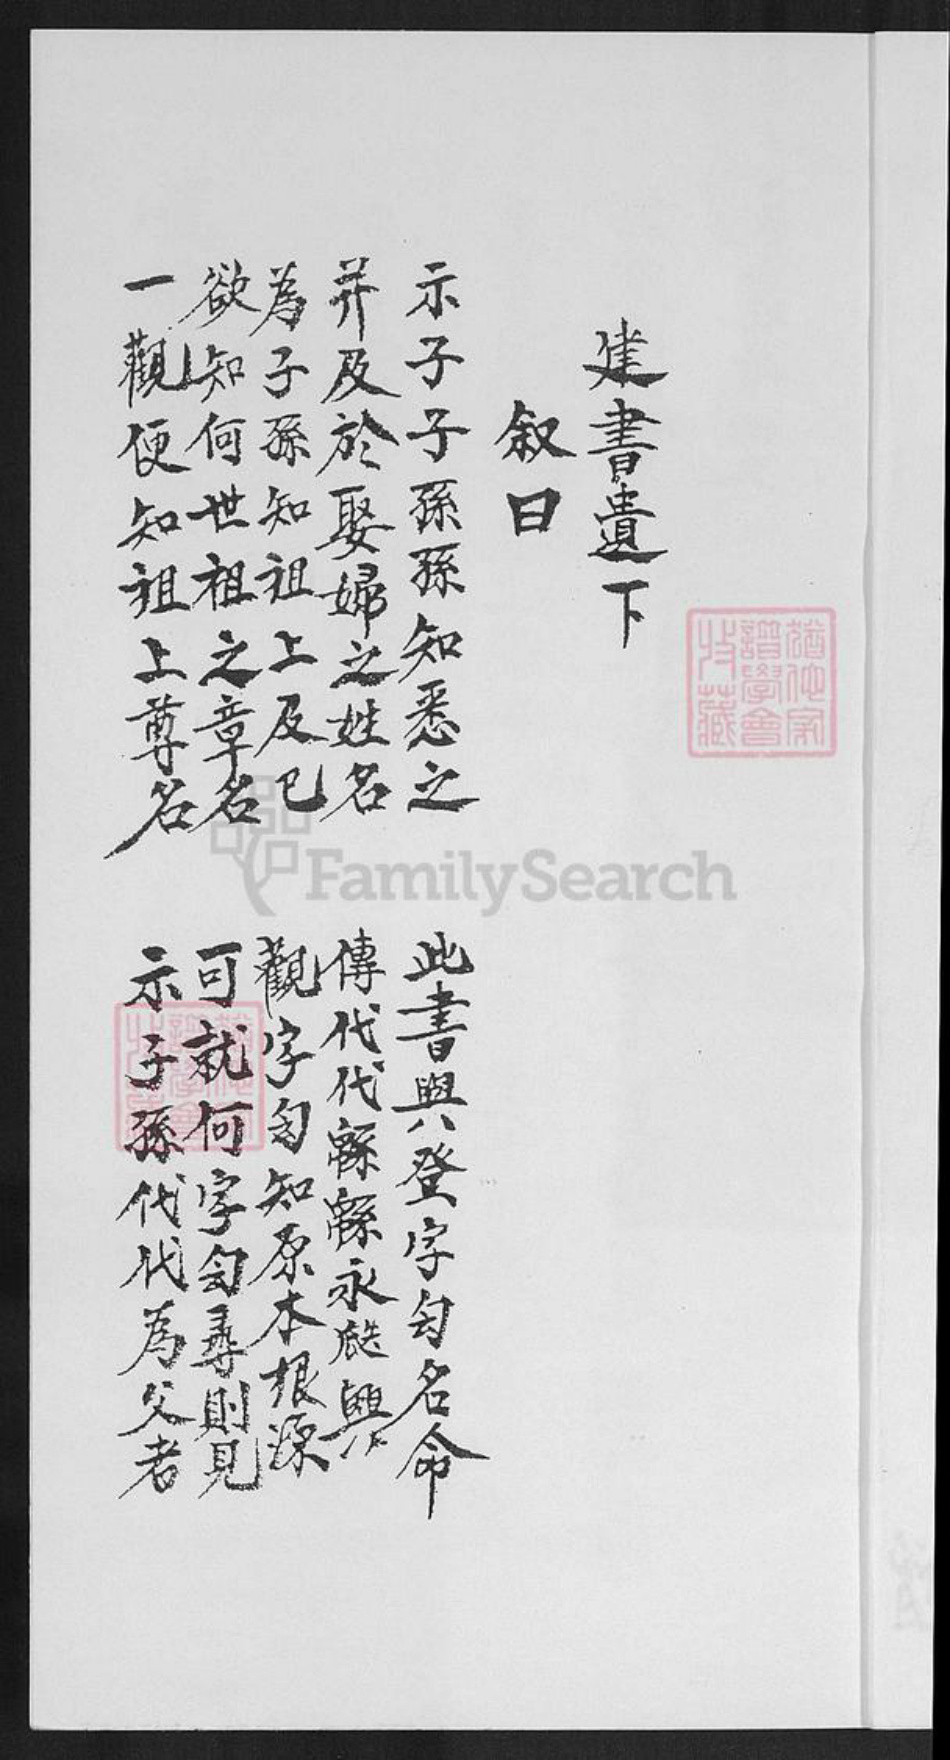 建書遺下
叙曰
示子子孫孫知悉之
并及於娶婦之姓名
為子孫知祖上及已
欲知何世祖之章名
一觀便知祖上尊名
此書與登字匀名命
傳代代緜緜永 興
觀字匀知原本根源
可就何字匀尋則見
示子孫代代為父者
猶他家
譜學會
收藏
FamilySearch